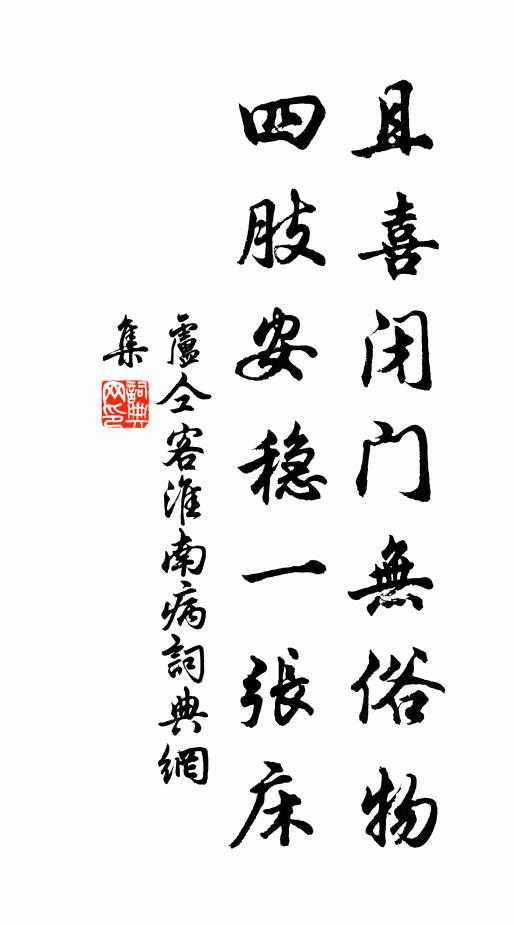 且喜闭门無俗物
四肢安稳一張床
盧仝客淮南病詞典網
集
詞典網印